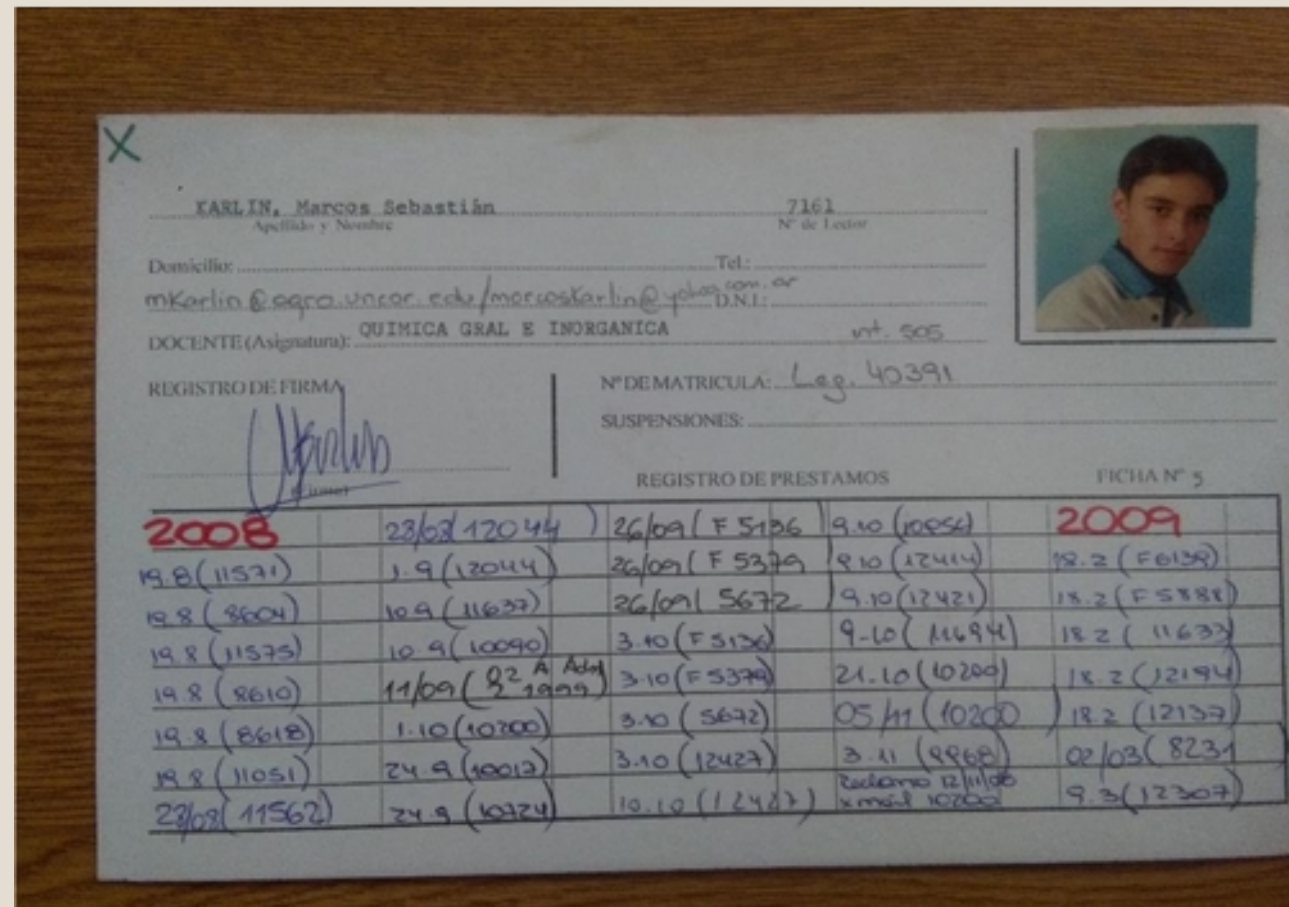 X
KARLIN, Marcos Sebastián 7161
Apellido y Nombre Nº de Lector
Domicilio: Tel.:
mkarlin@agro.uncor.edu/marcoskarlin@yahoo.com.ar
D.N.I.:
DOCENTE (Asignatura): QUIMICA GRAL E INORGANICA int. 505
REGISTRO DE FIRMA Nº DE MATRICULA: Leg. 40391
SUSPENSIONES:
(Firma) REGISTRO DE PRESTAMOS FICHA Nº 5
2008 28/08(12044) 26/09(F 5136 9.10 (10854) 2009
19.8(11571) 1.9(12044) 26/09(F 5379 9.10(12414) 18.2(F6139)
19.8(8604) 10.9(11637) 26/09(5672) 9.10(12421) 18.2(F5888)
19.8(11575) 10.9(10090) 3.10(F5136) 9.10(11694) 18.2(11633)
19.8(8610) 11/09( 1999) 3.10(F5379) 21.10(10200) 18.2(12194)
19.8(8618) 1.10(10200) 3.10(5672) 05/11(10200) 18.2(12137)
19.8(11051) 24.9(10013) 3.10(12427) 3.11(9968) 02/03(8231
28/08(11562) 24.9(10724) 10.10(12427) Reclamo 12/11/08 x mail 10200 9.3(12307)